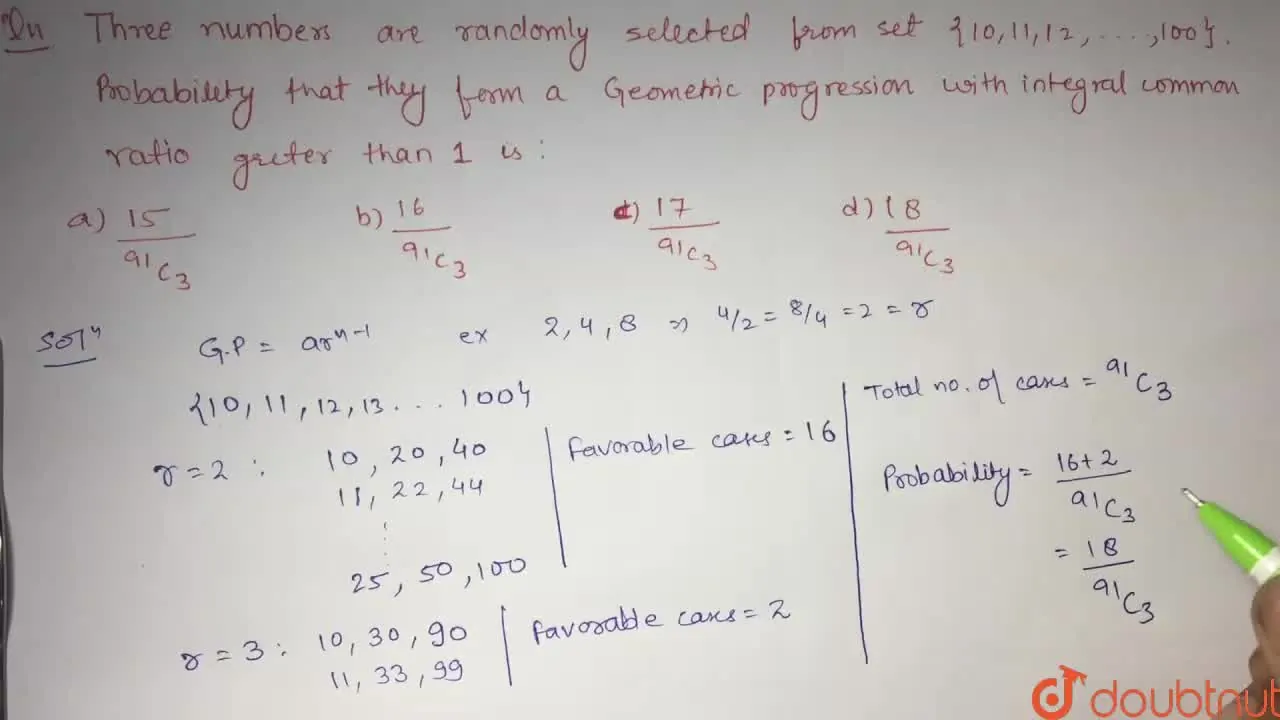 Qn Three numbers are randomly selected from set {10,11,12,....,100}.
Probability that they form a Geometric progression with integral common
ratio greter than 1 is:
a) 15/⁹¹C₃ b) 16/⁹¹C₃ c) 17/⁹¹C₃ d) 18/⁹¹C₃
Solⁿ G.P = arⁿ⁻¹ ex 2, 4, 8 ⇒ 4/2 = 8/4 = 2 = r
{10, 11, 12, 13 ... 100}
r = 2 : 10, 20, 40
11, 22, 44
25, 50, 100
favorable cases = 16
r = 3 : 10, 30, 90
11, 33, 99
favorable cases = 2
Total no. of cases = ⁹¹C₃
Probability = 16+2/⁹¹C₃
= 18/⁹¹C₃
doubtnut